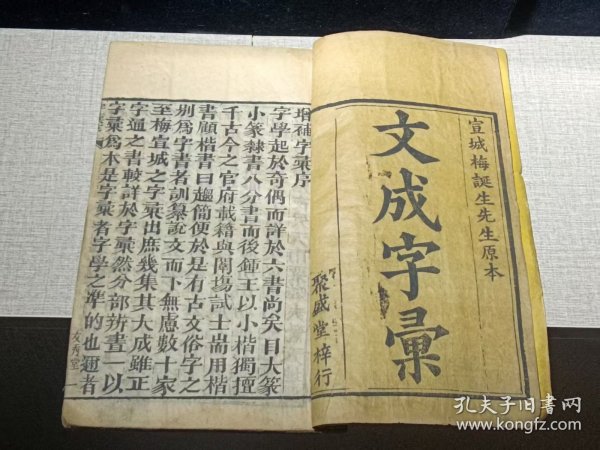 宣城梅誕生先生原本
文成字彙
聚盛堂梓行
增補字彙序
字學起於奇偶而詳於六書尚矣自大篆
小篆隸書八分書而後鍾王以小楷獨擅
千古今之官府載籍與闈塲試士耑用楷
書顧楷書曰趨簡便於是有古文俗字之
别爲字書者訓纂說文而下無慮數十家
至梅宣城之字彙出庶幾集其大成雖正
字通之書較詳於字彙然分部辨畫一以
字彙爲本是字彙者字學之準的也邇者
友秀堂
孔夫子旧書网
www.kongfz.com